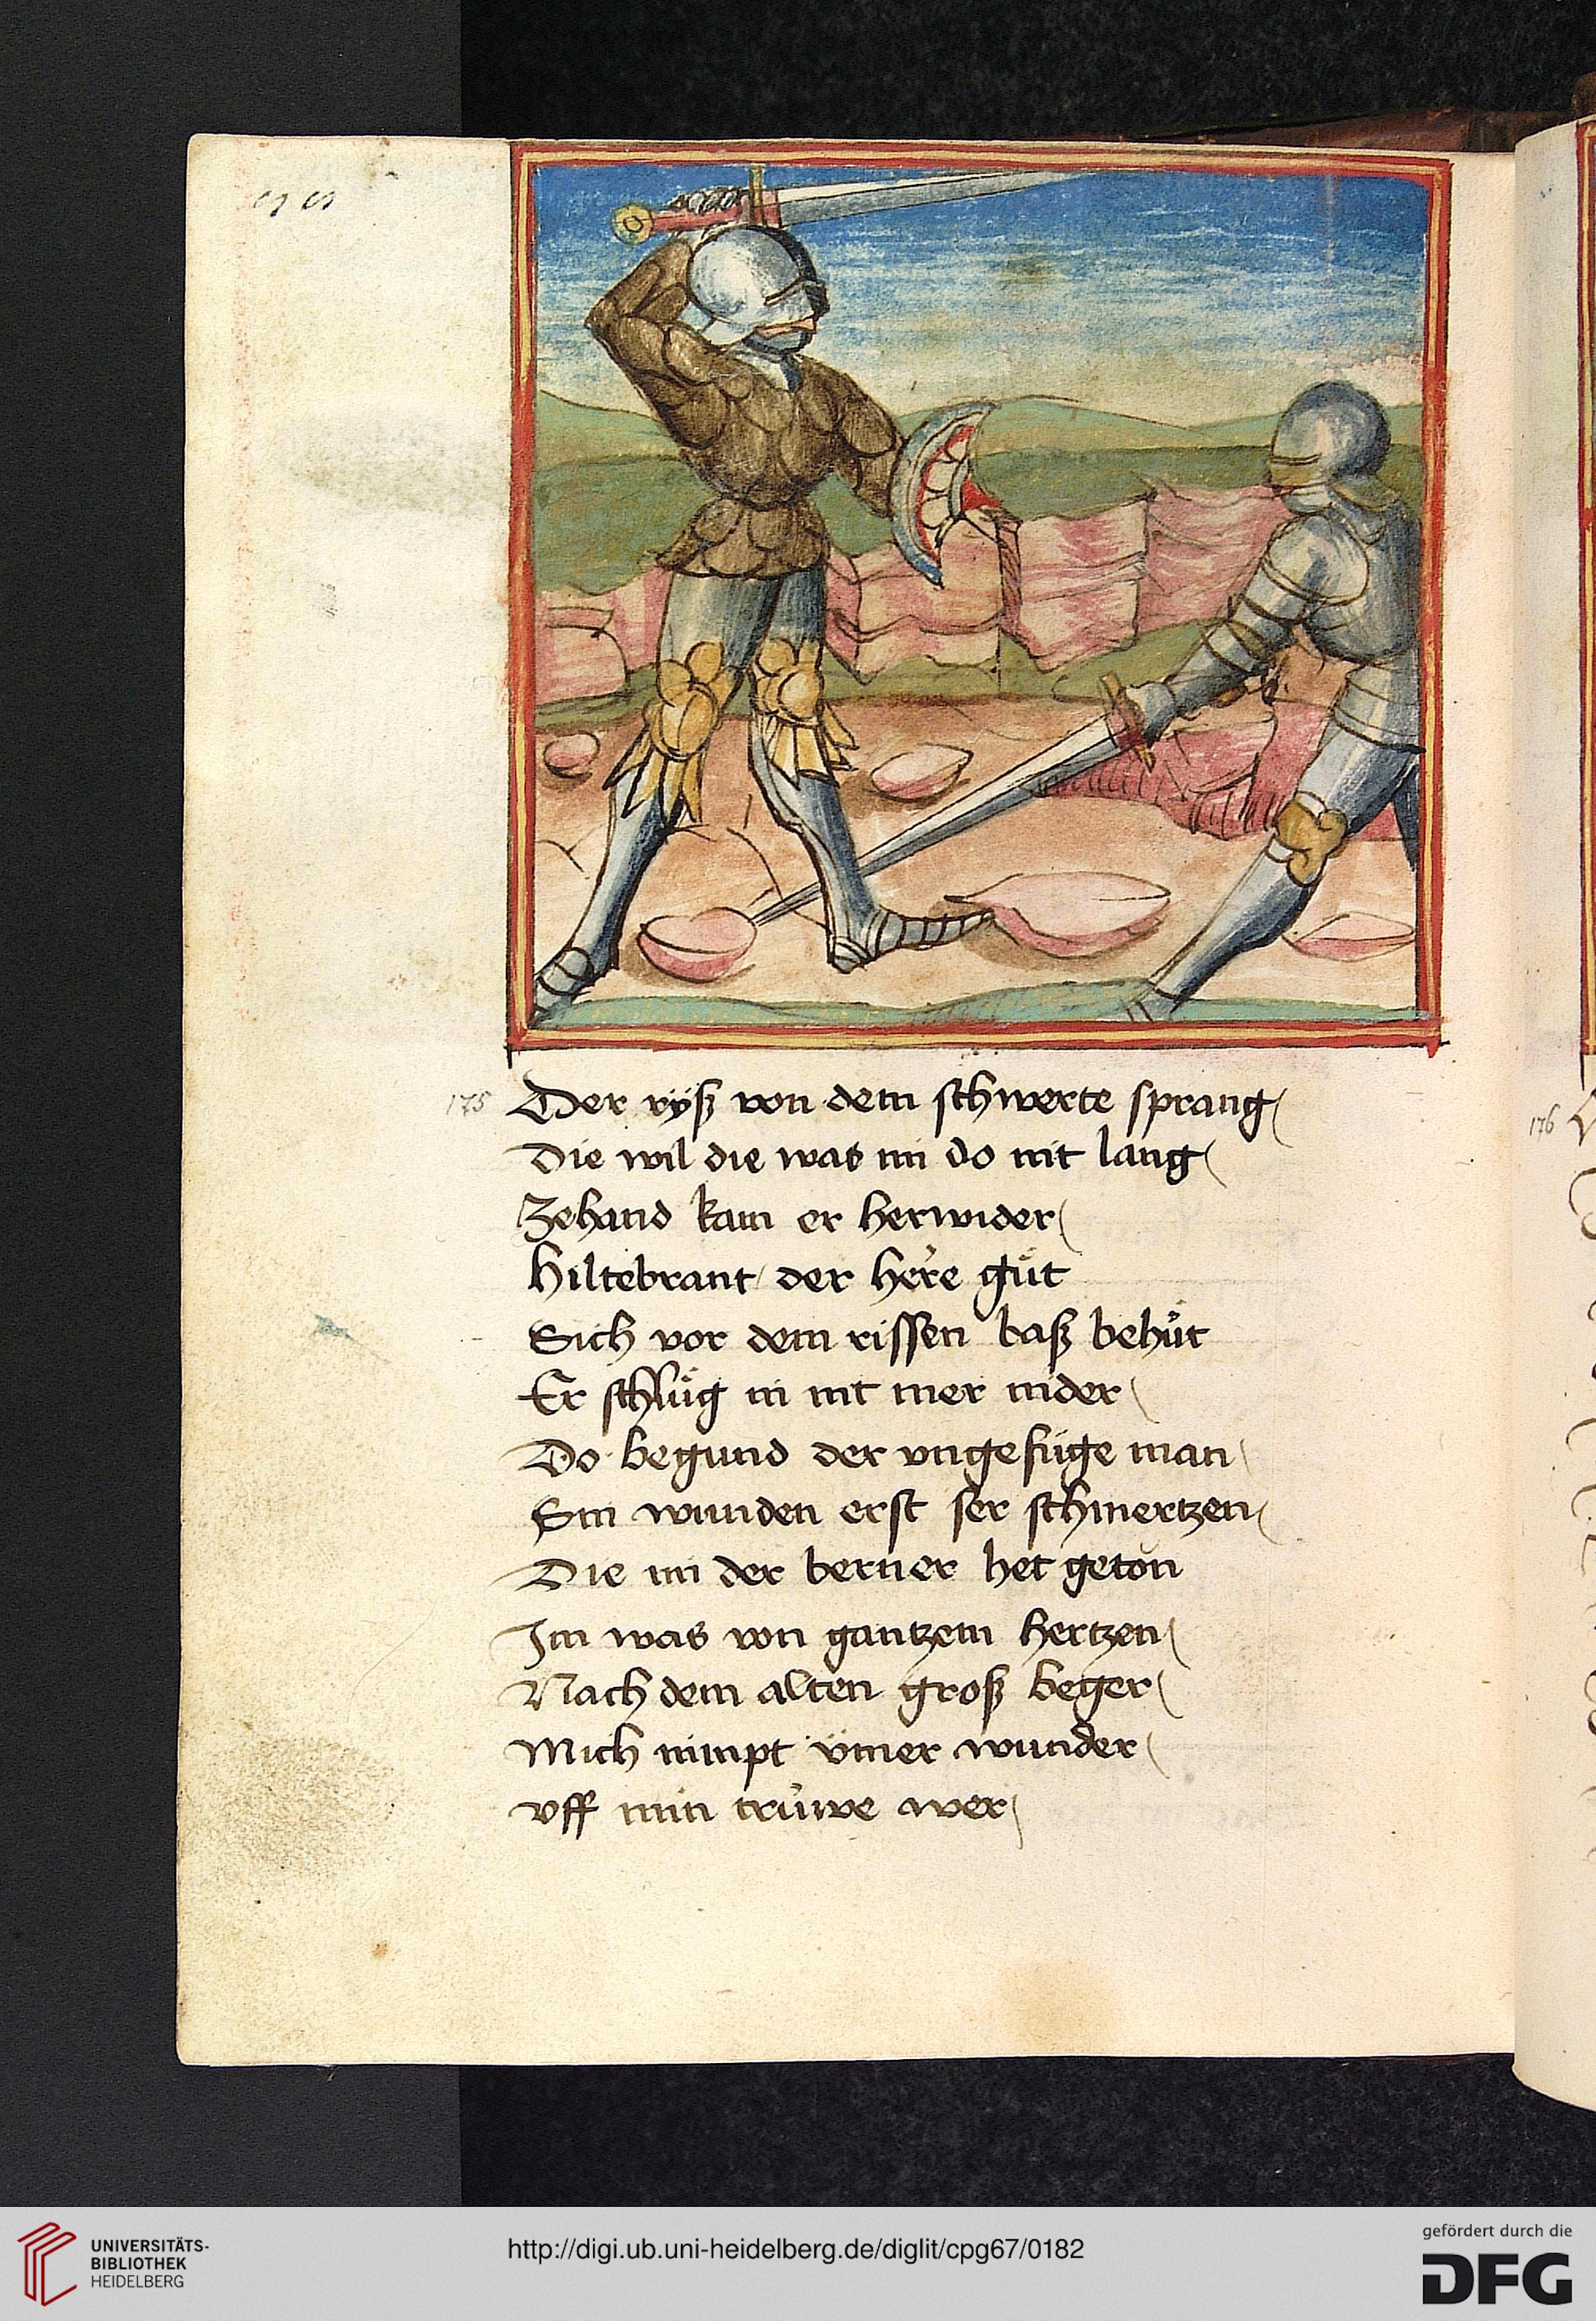 175
Der ryß von dem schwerte sprang
Die wil die was im do nit lang
Zehand kam er herwider
Hiltebrant der here gůt
Sich vor dem rissen baß behůt
Er schlůg in nit mer nider
Do begund der vngefüge man
Sin wunden erst ser schmertzen
Die im der berner het geton
Im was von gantzem hertzen
Nach dem alten groß beger
Mich nimpt ymer wunder
vff min trüwe wer
176
UNIVERSITÄTS-
BIBLIOTHEK
HEIDELBERG
http://digi.ub.uni-heidelberg.de/diglit/cpg67/0182
gefördert durch die
DFG